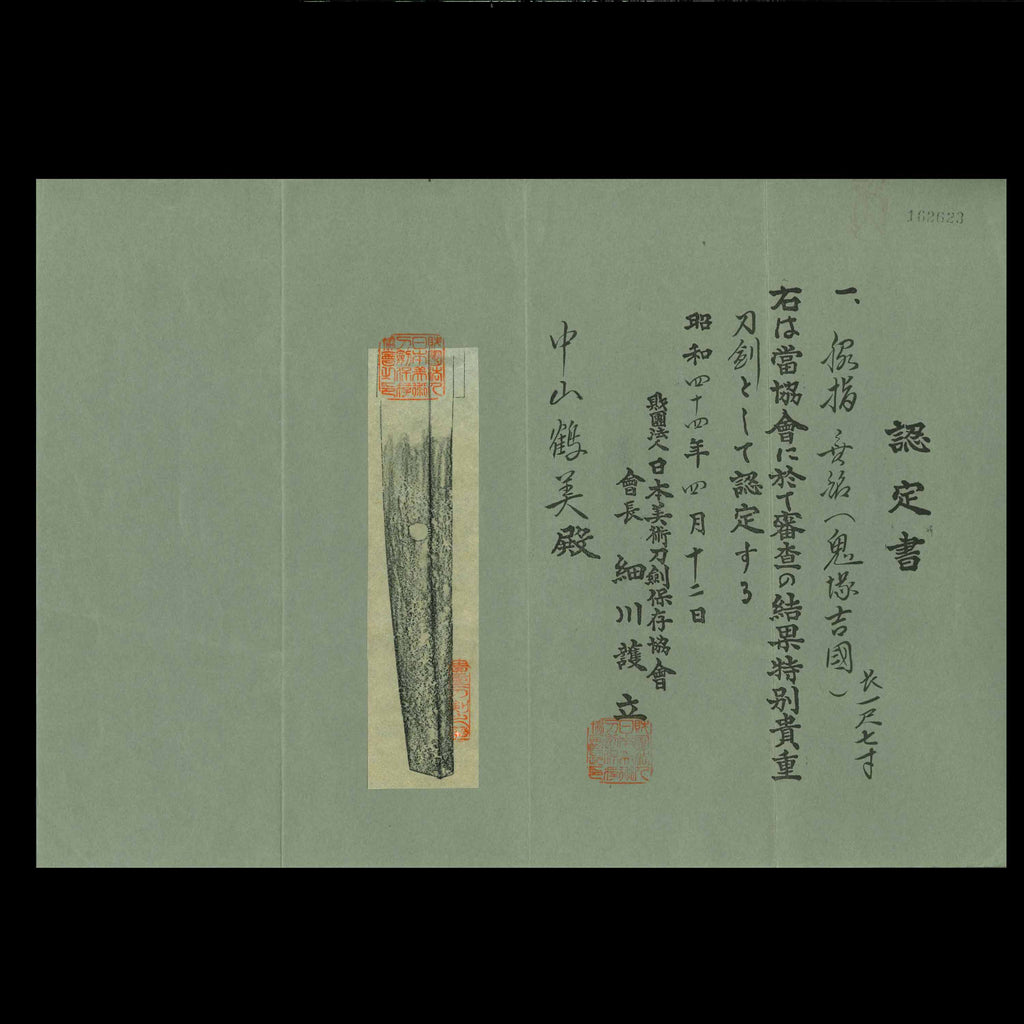 162623
認定書
一、脇指 無銘（鬼塚吉國）
長一尺七寸
右は當協會に於て審査の結果特別貴重
刀劍として認定する
昭和四十四年四月十二日
財團法人日本美術刀劍保存協會
會長 細川護立
中山鶴美殿